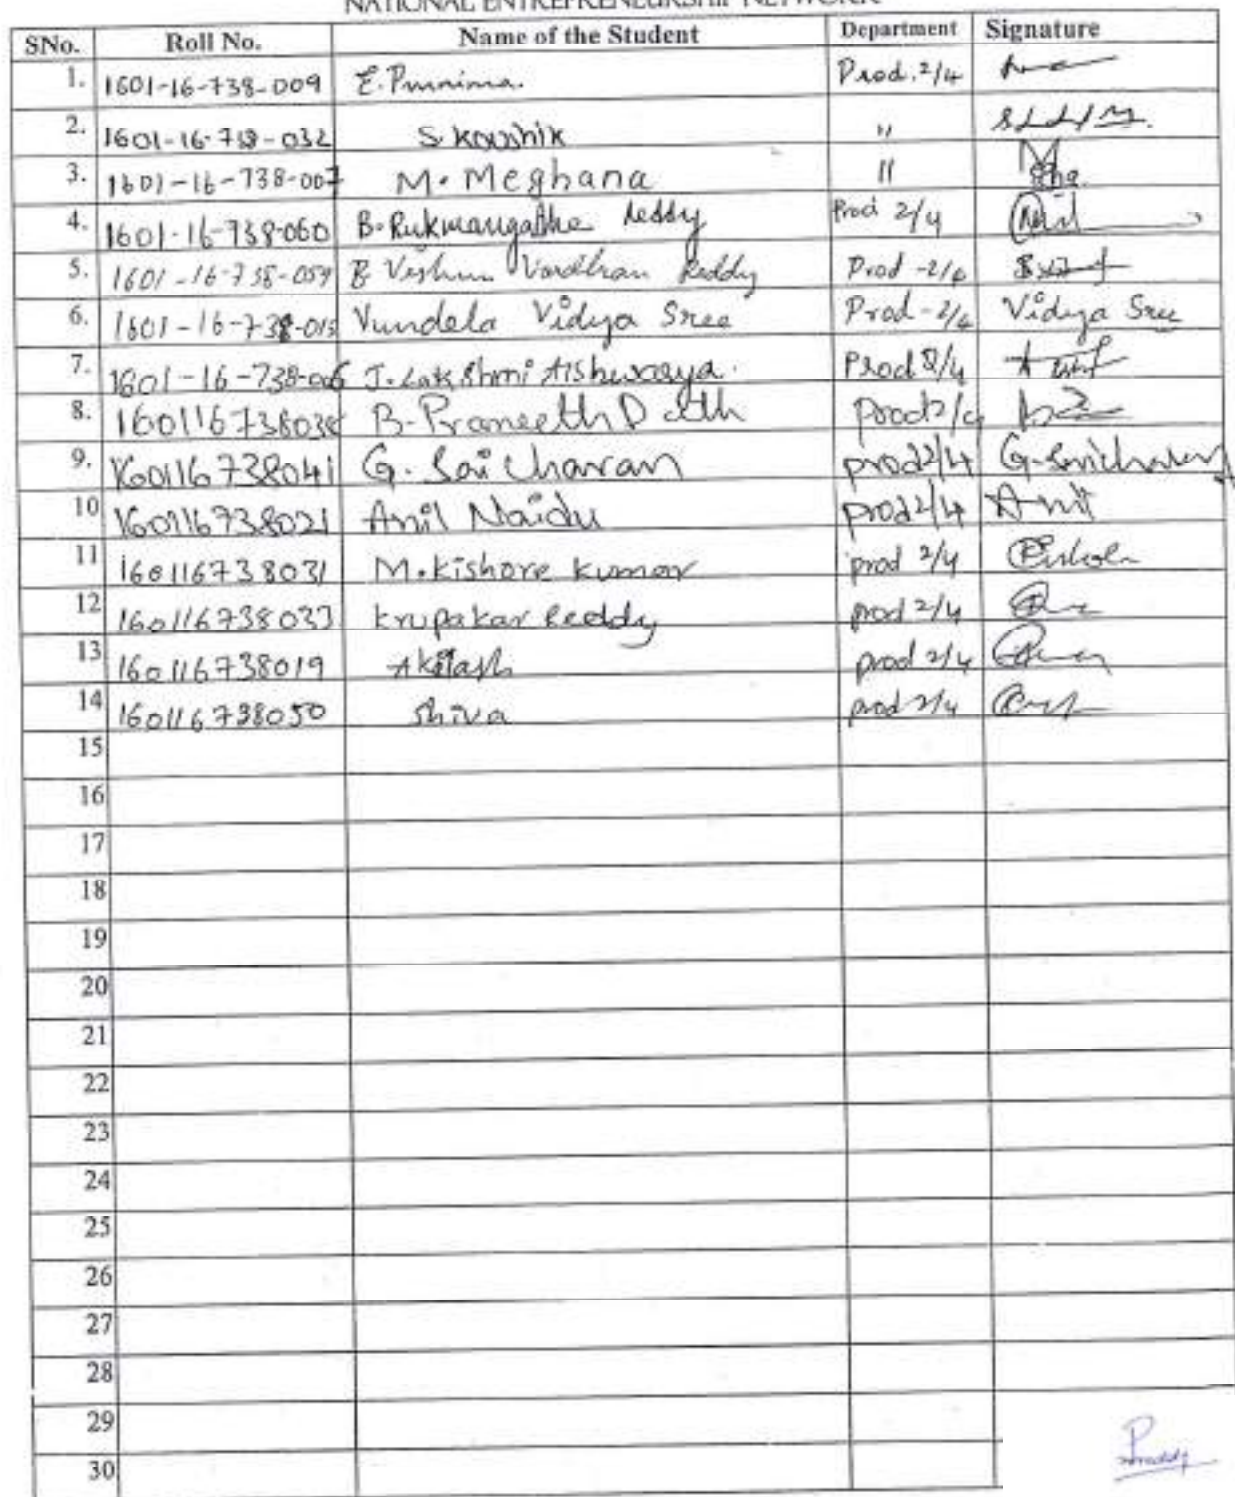 NATIONAL ENTREPRENEURSHIP NETWORK
SNo. Roll No. Name of the Student Department Signature
1. 1601-16-738-009 E. Purnima. Prod. 2/4
2. 1601-16-738-032 S. Koushik "
3. 1601-16-738-007 M. Meghana "
4. 1601-16-738-060 B. Rukmangatha Reddy Prod 2/4
5. 1601-16-738-059 B Vishnu Vardhan Reddy Prod -2/4
6. 1601-16-738-015 Vundela Vidya Sree Prod -2/4 Vidya Sree
7. 1601-16-738-006 J. Lakshmi Aishwarya. Prod 2/4
8. 160116738038 B. Praneeth D prod 2/4
9. 160116738041 G. Sai Charan prod 2/4 G. Saicharan
10 160116738021 Anil Naidu prod 2/4 Anil
11 160116738031 M. Kishore Kumar prod 2/4
12 160116738033 Krupakar Reddy prod 2/4
13 160116738019 Akilash prod 2/4
14 160116738050 Shiva prod 2/4
15
16
17
18
19
20
21
22
23
24
25
26
27
28
29
30